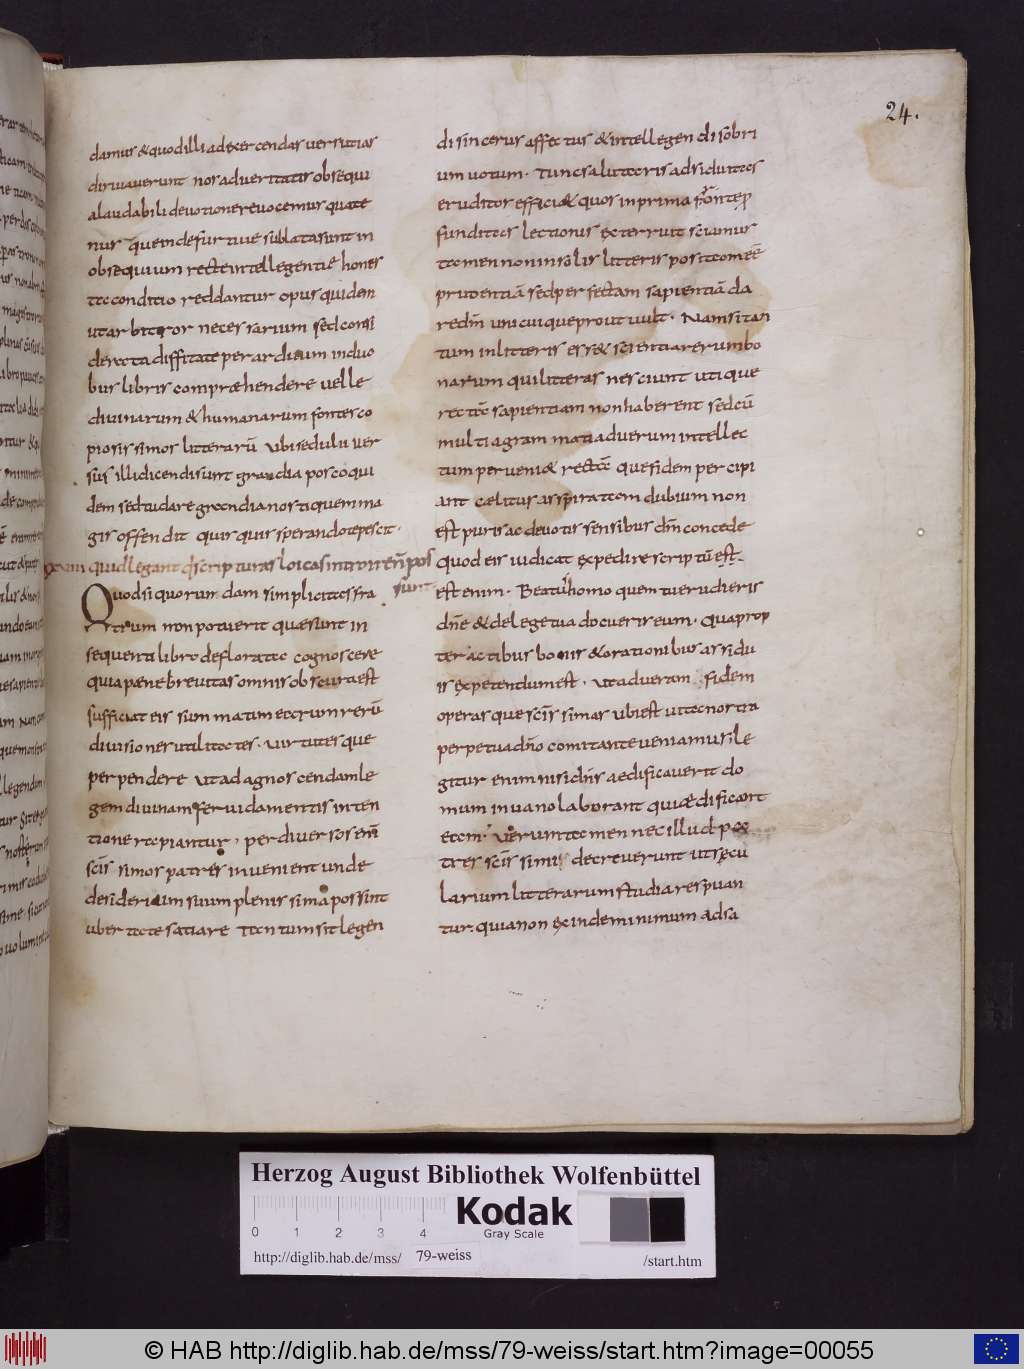 24.
damus & quod illi ad exercendas versutias
dirivaverunt nos ad veritatis obsequi
a laudabili devotione revocemus quate
nus quem de furtive sublata sunt in
obsequium recte intellegentiae hones
ta conditio reddantur opus quidem
ut arbitror necessarium sed consi
derata difficultate perarduum in duo
bus libris comprehendere velle
divinarum & humanarum fontes co
piosissimos litterarū ubi sedulii ver
sus illi dicendi sunt grandia posco qui
dem sed tu dare grandia nosti quem ma
gis offendit quisquis sperando tepescit.
quid legant q̄ scripturas loicas introire n̄ pos
sunt
Quod si quorundam simplicitas fra
trum non potuerit quae sunt in
sequenti libro deflorata cognoscere
quia paene brevitas omnis obscura est
sufficiat eis summatim earum rerū
divisiones utilitates. virtutesque
perpendere ut ad agnoscendam le
gem divinam fervida mentis inten
tione rapiantur, per diversos enī
scīs simos patres invenient unde
desiderium suum plenissima possint
ubertate satiare Tantum sit legen
di sincerus affectus & intellegendi sobri
um votum. Tunc salutaris adsiduitas
eruditos efficiat quos in prima fronte p̄
funditas lectionis exterruit sciamus
tamen non in solis litteris positam eē
prudentiā sed perfectam sapientiā da
re dm̄ unicuique prout vult. Nam si tan
tum in litteris esset scientia rerum bo
narum qui litteras nesciunt utique
rectā sapientiam non haberent sed cū
multi agrammati ad verum intellec
tum perveniat rectā que fidem percipi
ant cælitus asspiratam dubium non
est puris ac devotis sensibus dm̄ concede
quod eis iudicat expedire scriptū est.
est enim. Beatus homo quem tu erudieris
dn̄e & de lege tua docueris eum. Qua prop
ter actibus bonis & orationibus assidu
is expetendum est. ut ad veram fidem
operasque scīs simas ubi est vita nostra
perpetua dn̄o comitante veniamus. le
gitur enim nisi dn̄s aedificaverit do
mum in vano laborant qui ædificant
eam. Verumtamen nec illud pa
tres scīs simi decreverunt ut secu
larium litterarum studia respuan
tur. quia non exinde minimum ad sa
Herzog August Bibliothek Wolfenbüttel
0 1 2 3 4
Kodak
Gray Scale
http://diglib.hab.de/mss/ 79-weiss /start.htm
© HAB http://diglib.hab.de/mss/79-weiss/start.htm?image=00055